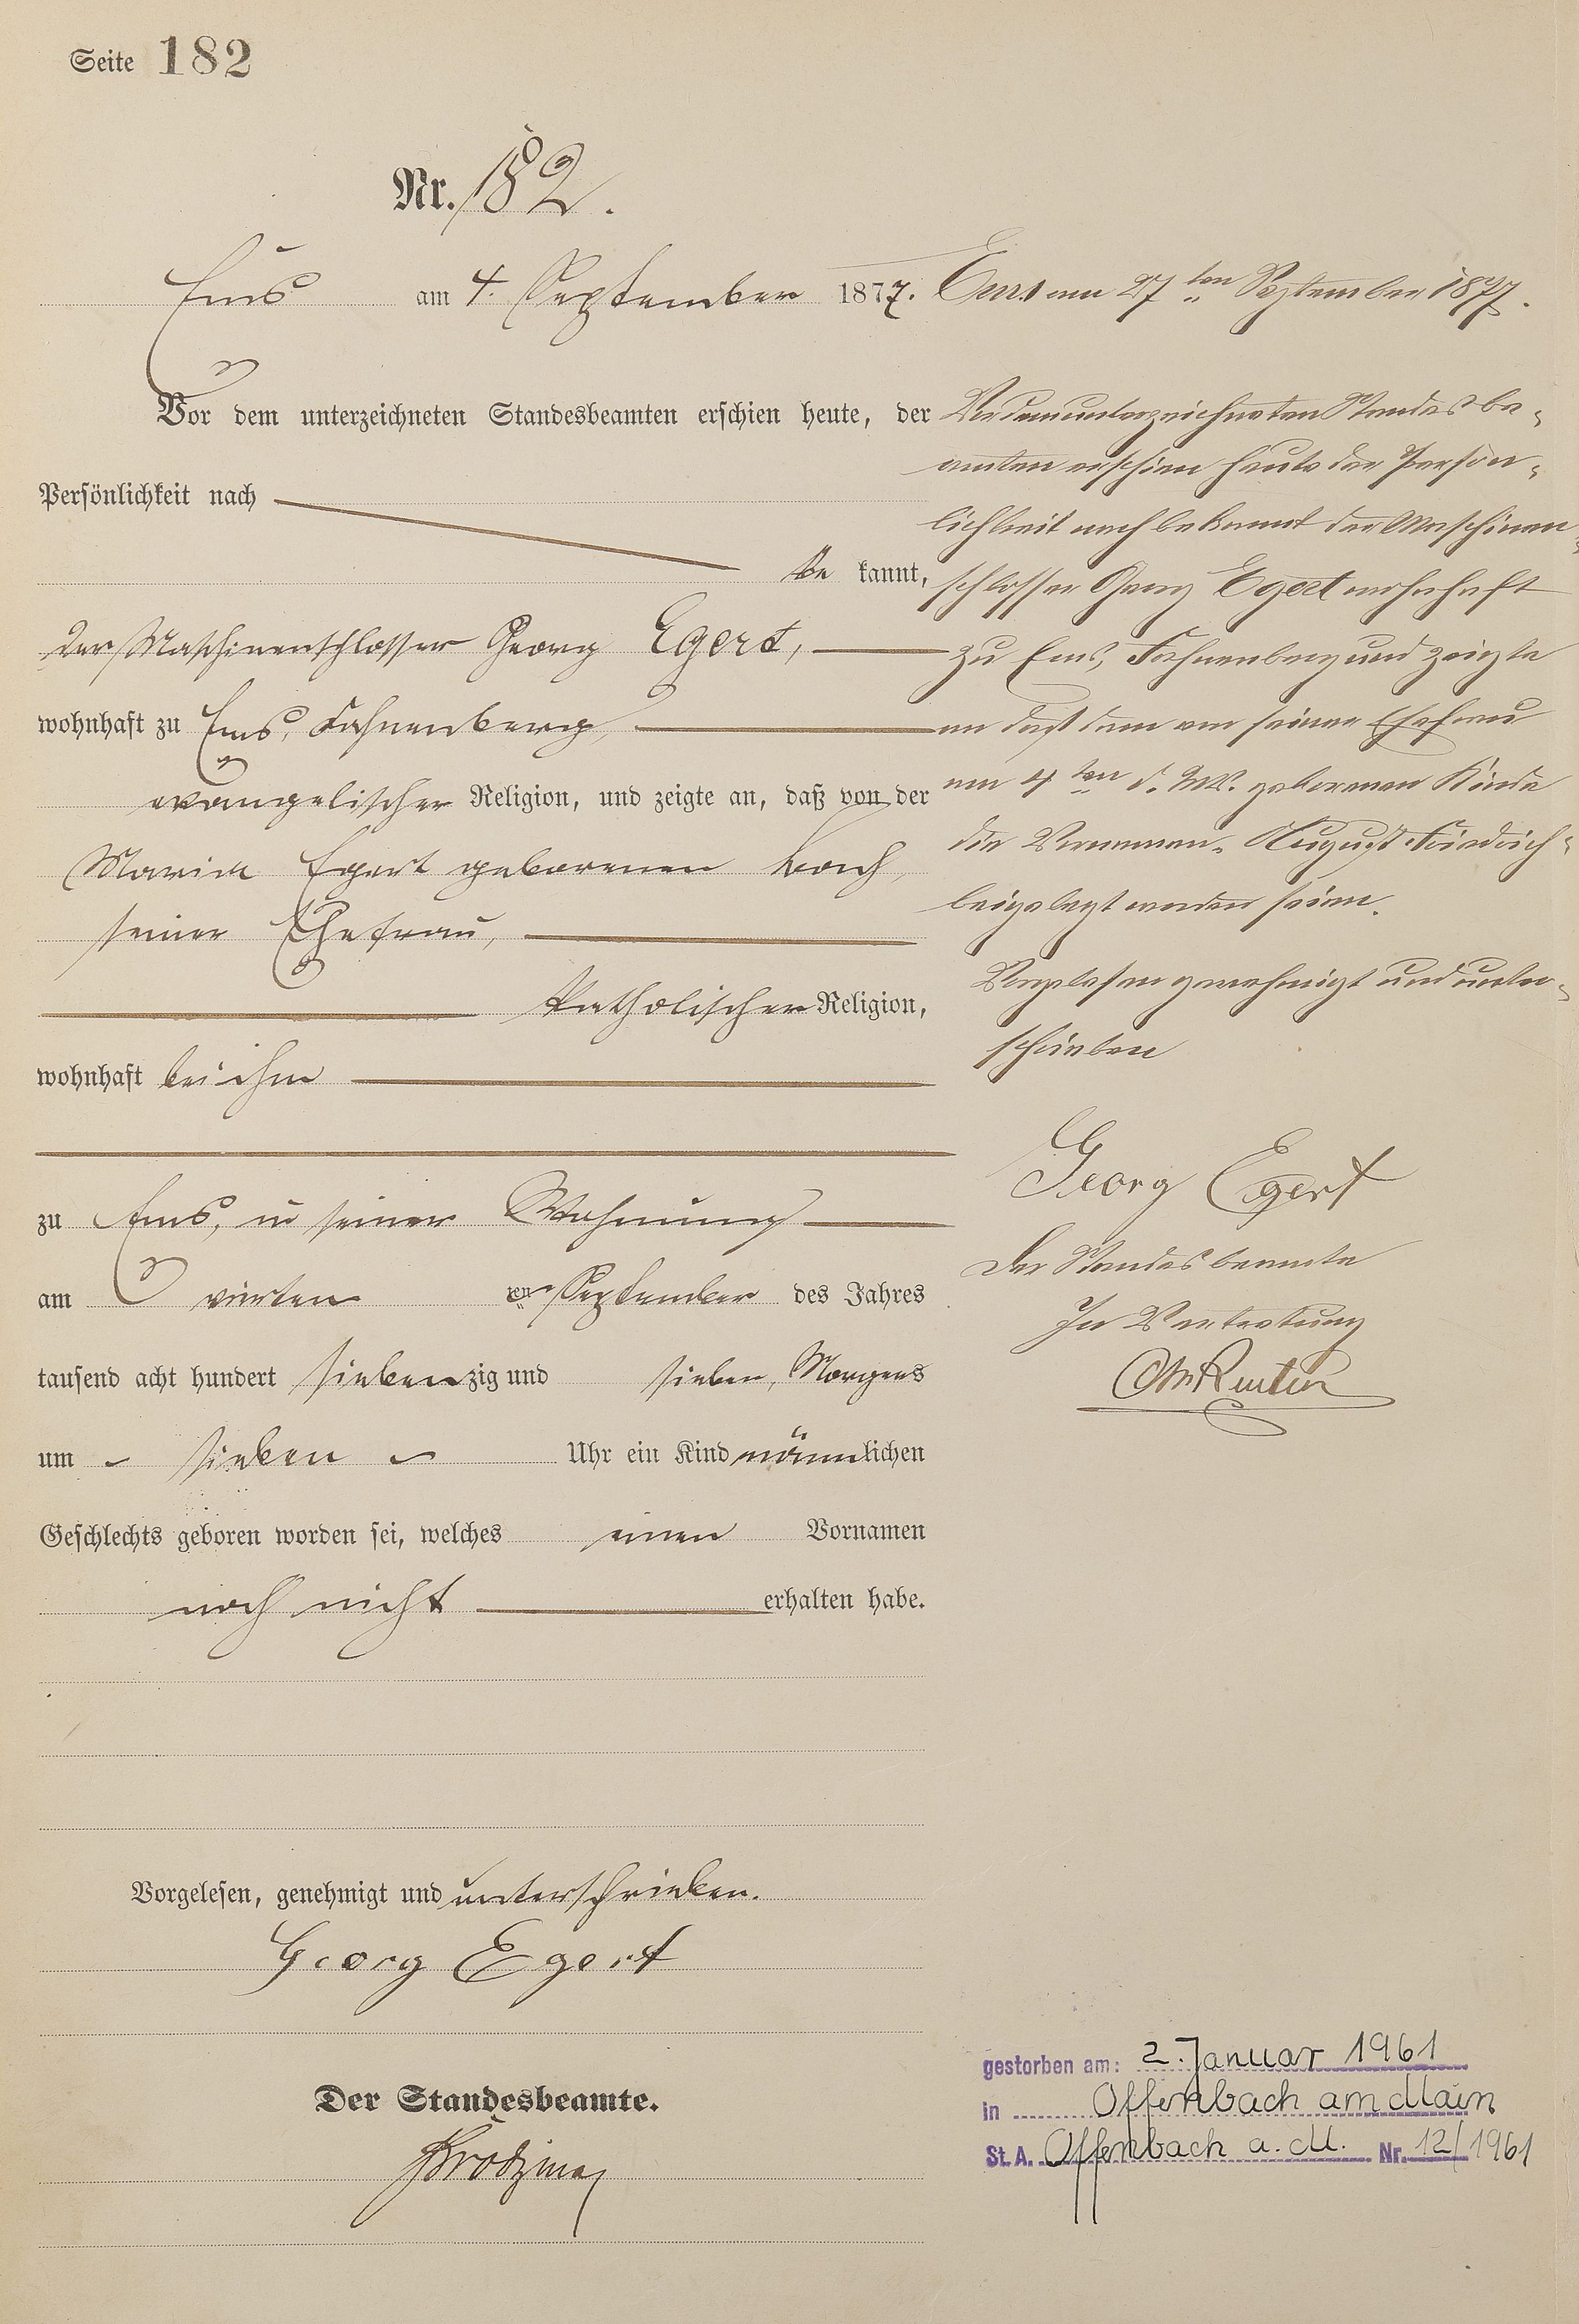 Seite 182
Nr. 182.
Ems am 4. September 1877.
Vor dem unterzeichneten Standesbeamten erschien heute, der
Persönlichkeit nach
be kannt,
der Maschinenschlosser Georg Egert,
wohnhaft zu Ems, Fahnenberg,
evangelischer Religion, und zeigte an, daß von der
Maria Egert geborenen
seiner Ehefrau,
katholischer Religion,
wohnhaft bei ihm
zu Ems, in seiner Wohnung
am vierten ten September des Jahres
tausend acht hundert sieben zig und sieben, Morgens
um sieben Uhr ein Kind männlichen
Geschlechts geboren worden sei, welches einen Vornamen
noch nicht erhalten habe.
Vorgelesen, genehmigt und unterschrieben.
Georg Egert
Der Standesbeamte.
Ems am 27ten September 1877.
Vor dem unterzeichneten Standesbe-
amten erschien heute der Persön-
lichkeit nach bekannt der Maschinen-
schlosser Georg Egert wohnhaft
zu Ems, Fahnenberg und zeigte
an daß dem von seiner Ehefrau
am 4ten d. Mts. geborenen Kinde
die Vornamen August Friedrich
beigelegt worden seien.
Vorgelesen genehmigt und unter-
schrieben
Georg Egert
Der Standesbeamte
In Vertretung
gestorben am: 2. Januar 1961
in Offenbach am Main
St. A. Offenbach a. M. Nr. 12/1961